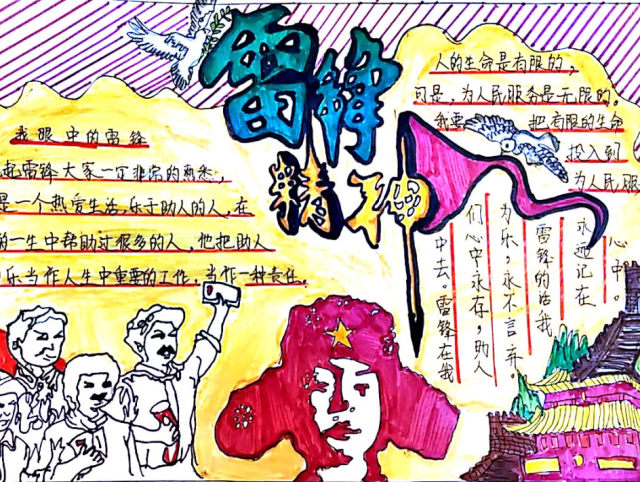 雷锋
精神
我眼中的雷锋
起雷锋大家一定非常的熟悉，
是一个热爱生活，乐于助人的人，在
的一生中帮助过很多的人，他把助人
乐当作人生中重要的工作，当作一种责任。
人的生命是有限的，
可是，为人民服务是无限的。
我要把有限的生命
投入到
为人民服
心中。
永远记在
雷锋的话我
为乐，永不言弃。
们心中永存，助人
中去。雷锋在我